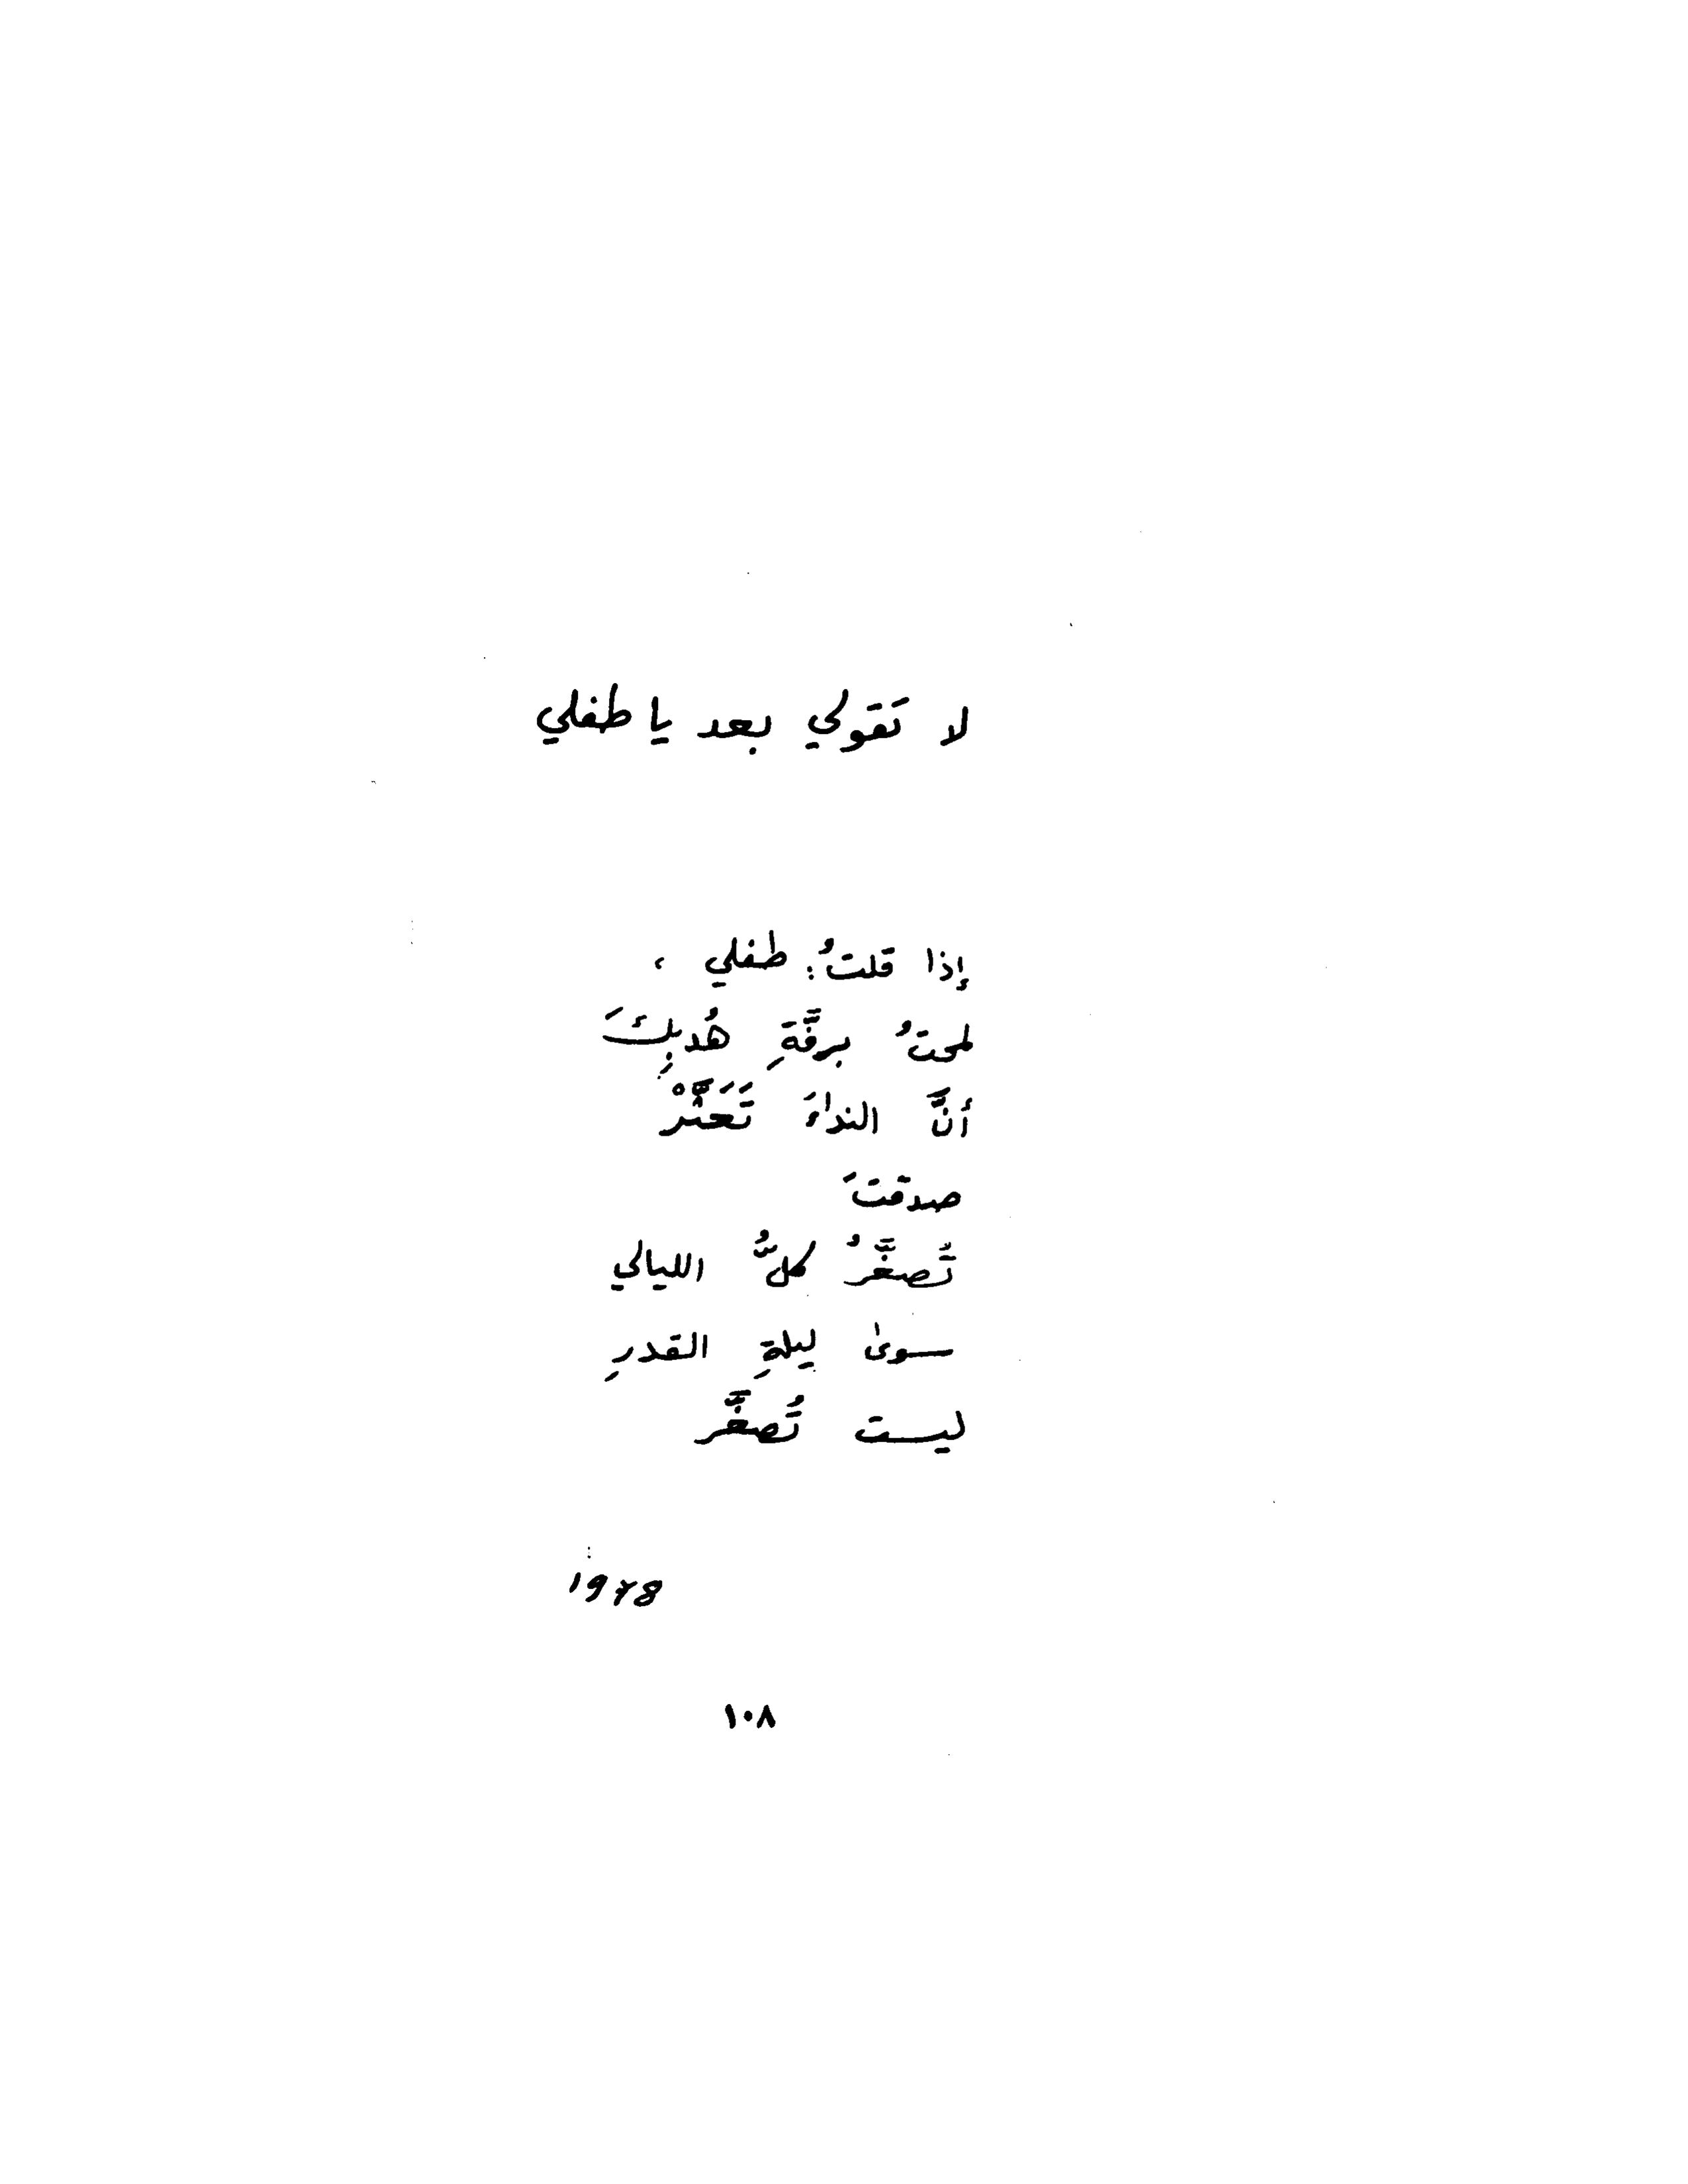 لا تقولي بعد يا طفلي
إذا قلتُ: طفلي ،
لمحتُ برفَّةِ هُدبِكَ
أنَّ النداءَ تَعَثَّرْ
صدقتَ
تُصغَّرُ كلُّ الليالي
سوىٰ ليلةِ القدرِ
ليست تُصغَّر
1978
١٠٨